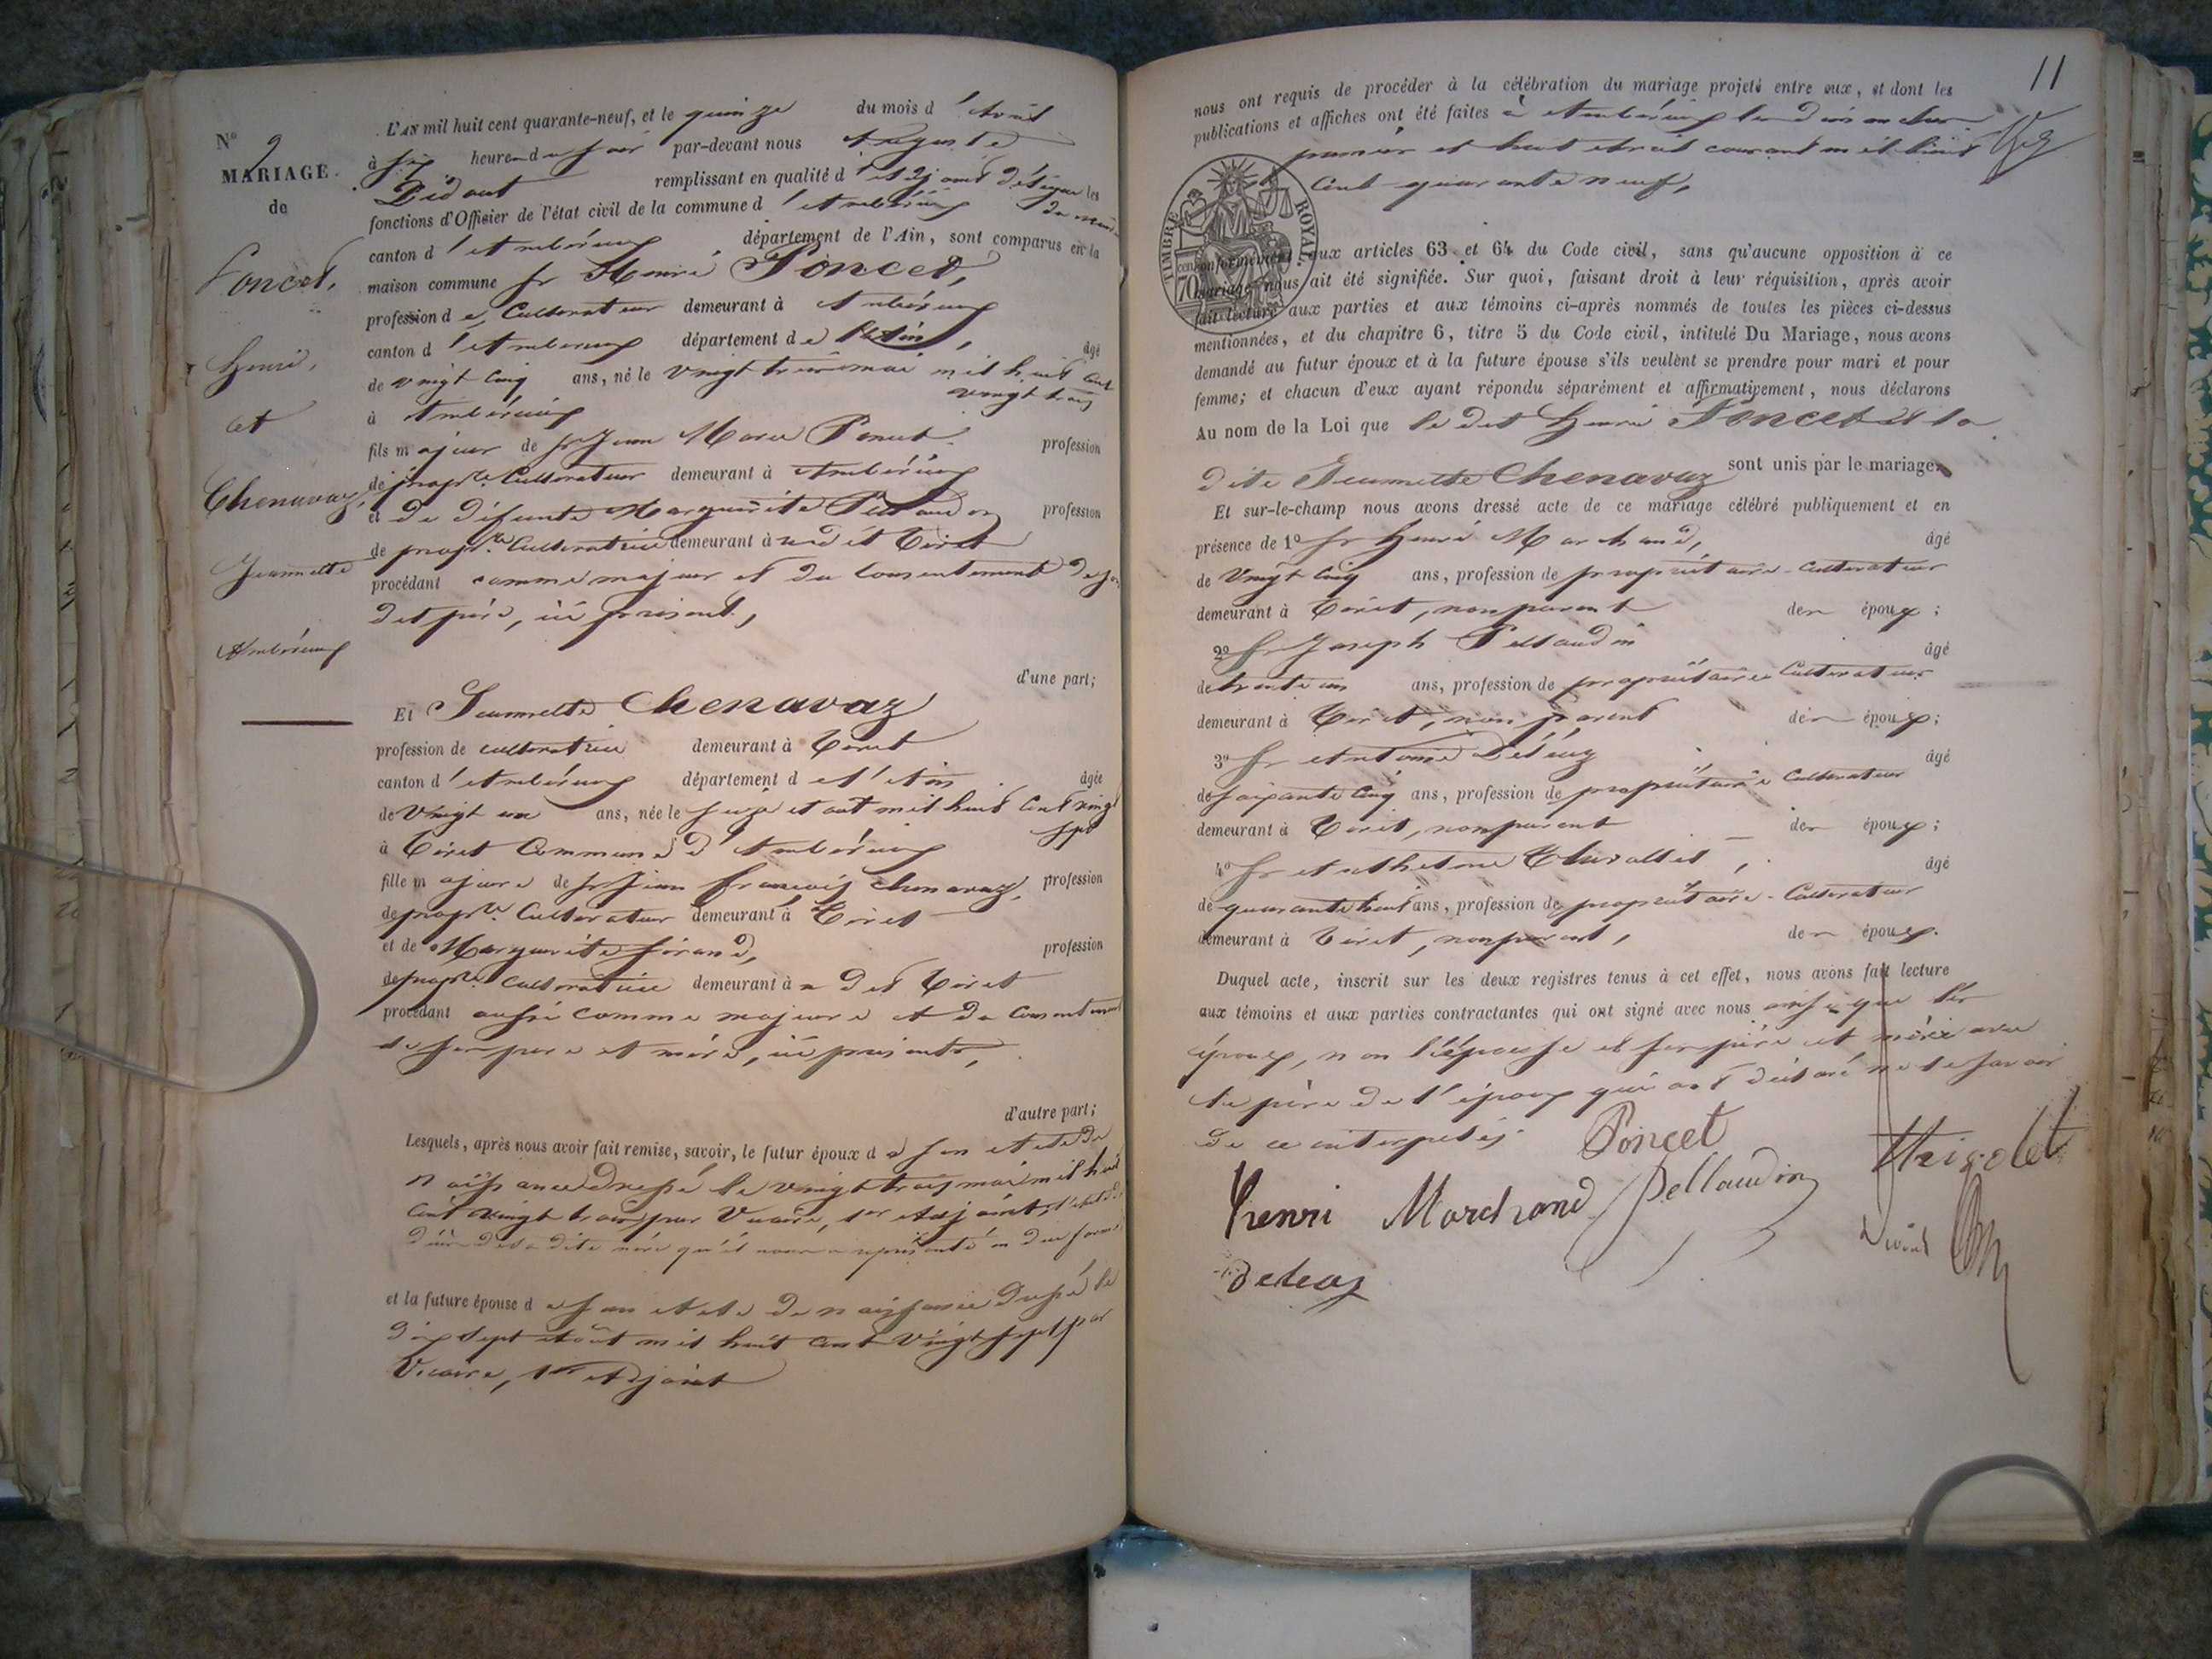 N° 9
MARIAGE
de
Poncet,
Henri,
et
Chenavaz,
Jeannette
Ambérieux
L'AN mil huit cent quarante-neuf, et le quinze du mois d'Avril
à six heures du soir par-devant nous Auguste
Didout remplissant en qualité d'Adjoint délégué les
fonctions d'Officier de l'état civil de la commune d'Ambérieux
canton d'Ambérieux département de l'Ain, sont comparus en la
maison commune sr Henri Poncet,
profession de Cultivateur demeurant à Ambérieux
canton d'Ambérieux département de l'Ain, âgé
de vingt cinq ans, né le vingt trois mai mil huit cent
vingt trois
à Ambérieux
fils majeur de sr Jean Marie Poncet profession
de propre Cultivateur demeurant à Ambérieux
et de défunte Marguerite profession
de propre Cultivatrice demeurant à udit Tiret
procédant comme majeur et du consentement de son
dit père, ici présent,
d'une part;
Et Jeannette Chenavaz
profession de cultivatrice demeurant à Tiret
canton d'Ambérieux département de l'Ain âgée
de vingt un ans, née le seize Aout mil huit cent vingt
sept
à Tiret Commune d'Ambérieux
fille majeure de sr Jean françois Chenavaz, profession
de propre Cultivateur demeurant à Tiret
et de Marguerite profession
de propre Cultivatrice demeurant à udit Tiret
procédant aussi comme majeure et du consentement
de ses père et mère, ici présents,
d'autre part;
Lesquels, après nous avoir fait remise, savoir, le futur époux de son Acte de
naissance dressé le vingt trois mai mil huit
cent vingt trois par Vicaire, 1er Adjoint,
de sa dite mère qu'il nous a représenté en due forme
et la future épouse de son Acte de naissance dressé le
dix sept Août mil huit cent vingt sept par
Vicaire, 1er Adjoint
11
nous ont requis de procéder à la célébration du mariage projeté entre eux, et dont les
publications et affiches ont été faites à Ambérieux les dimanches
premier et huit Avril courant mil huit
cent quarante neuf,
TIMBRE ROYAL
70 cen
conformément aux articles 63 et 64 du Code civil, sans qu'aucune opposition à ce
mariage nous ait été signifiée. Sur quoi, faisant droit à leur réquisition, après avoir
fait lecture aux parties et aux témoins ci-après nommés de toutes les pièces ci-dessus
mentionnées, et du chapitre 6, titre 5 du Code civil, intitulé Du Mariage, nous avons
demandé au futur époux et à la future épouse s'ils veulent se prendre pour mari et pour
femme; et chacun d'eux ayant répondu séparément et affirmativement, nous déclarons
Au nom de la Loi que le dit Henri Poncet et la
dite Jeannette Chenavaz sont unis par le mariage.
Et sur-le-champ nous avons dressé acte de ce mariage célébré publiquement et en
présence de 1° sr Henri Marchand, âgé
de vingt cinq ans, profession de propriétaire-Cultivateur
demeurant à Tiret, non parent des époux;
2° sr Joseph Pellaudin âgé
de trente un ans, profession de propriétaire Cultivateur
demeurant à Tiret, non parent des époux;
3° sr Antoine Déléaz âgé
de soixante cinq ans, profession de propriétaire Cultivateur
demeurant à Tiret, non parent des époux;
4° sr Anthelme âgé
de quarante huit ans, profession de propriétaire-Cultivateur
demeurant à Tiret, non parent, des époux.
Duquel acte, inscrit sur les deux registres tenus à cet effet, nous avons fait lecture
aux témoins et aux parties contractantes qui ont signé avec nous ainsi que les
époux, non l'épouse et ses père et mère avec
le père de l'époux qui ont déclaré ne le savoir
de ce interpelés.
Poncet
Henri Marchand Pellaudin
deleaz